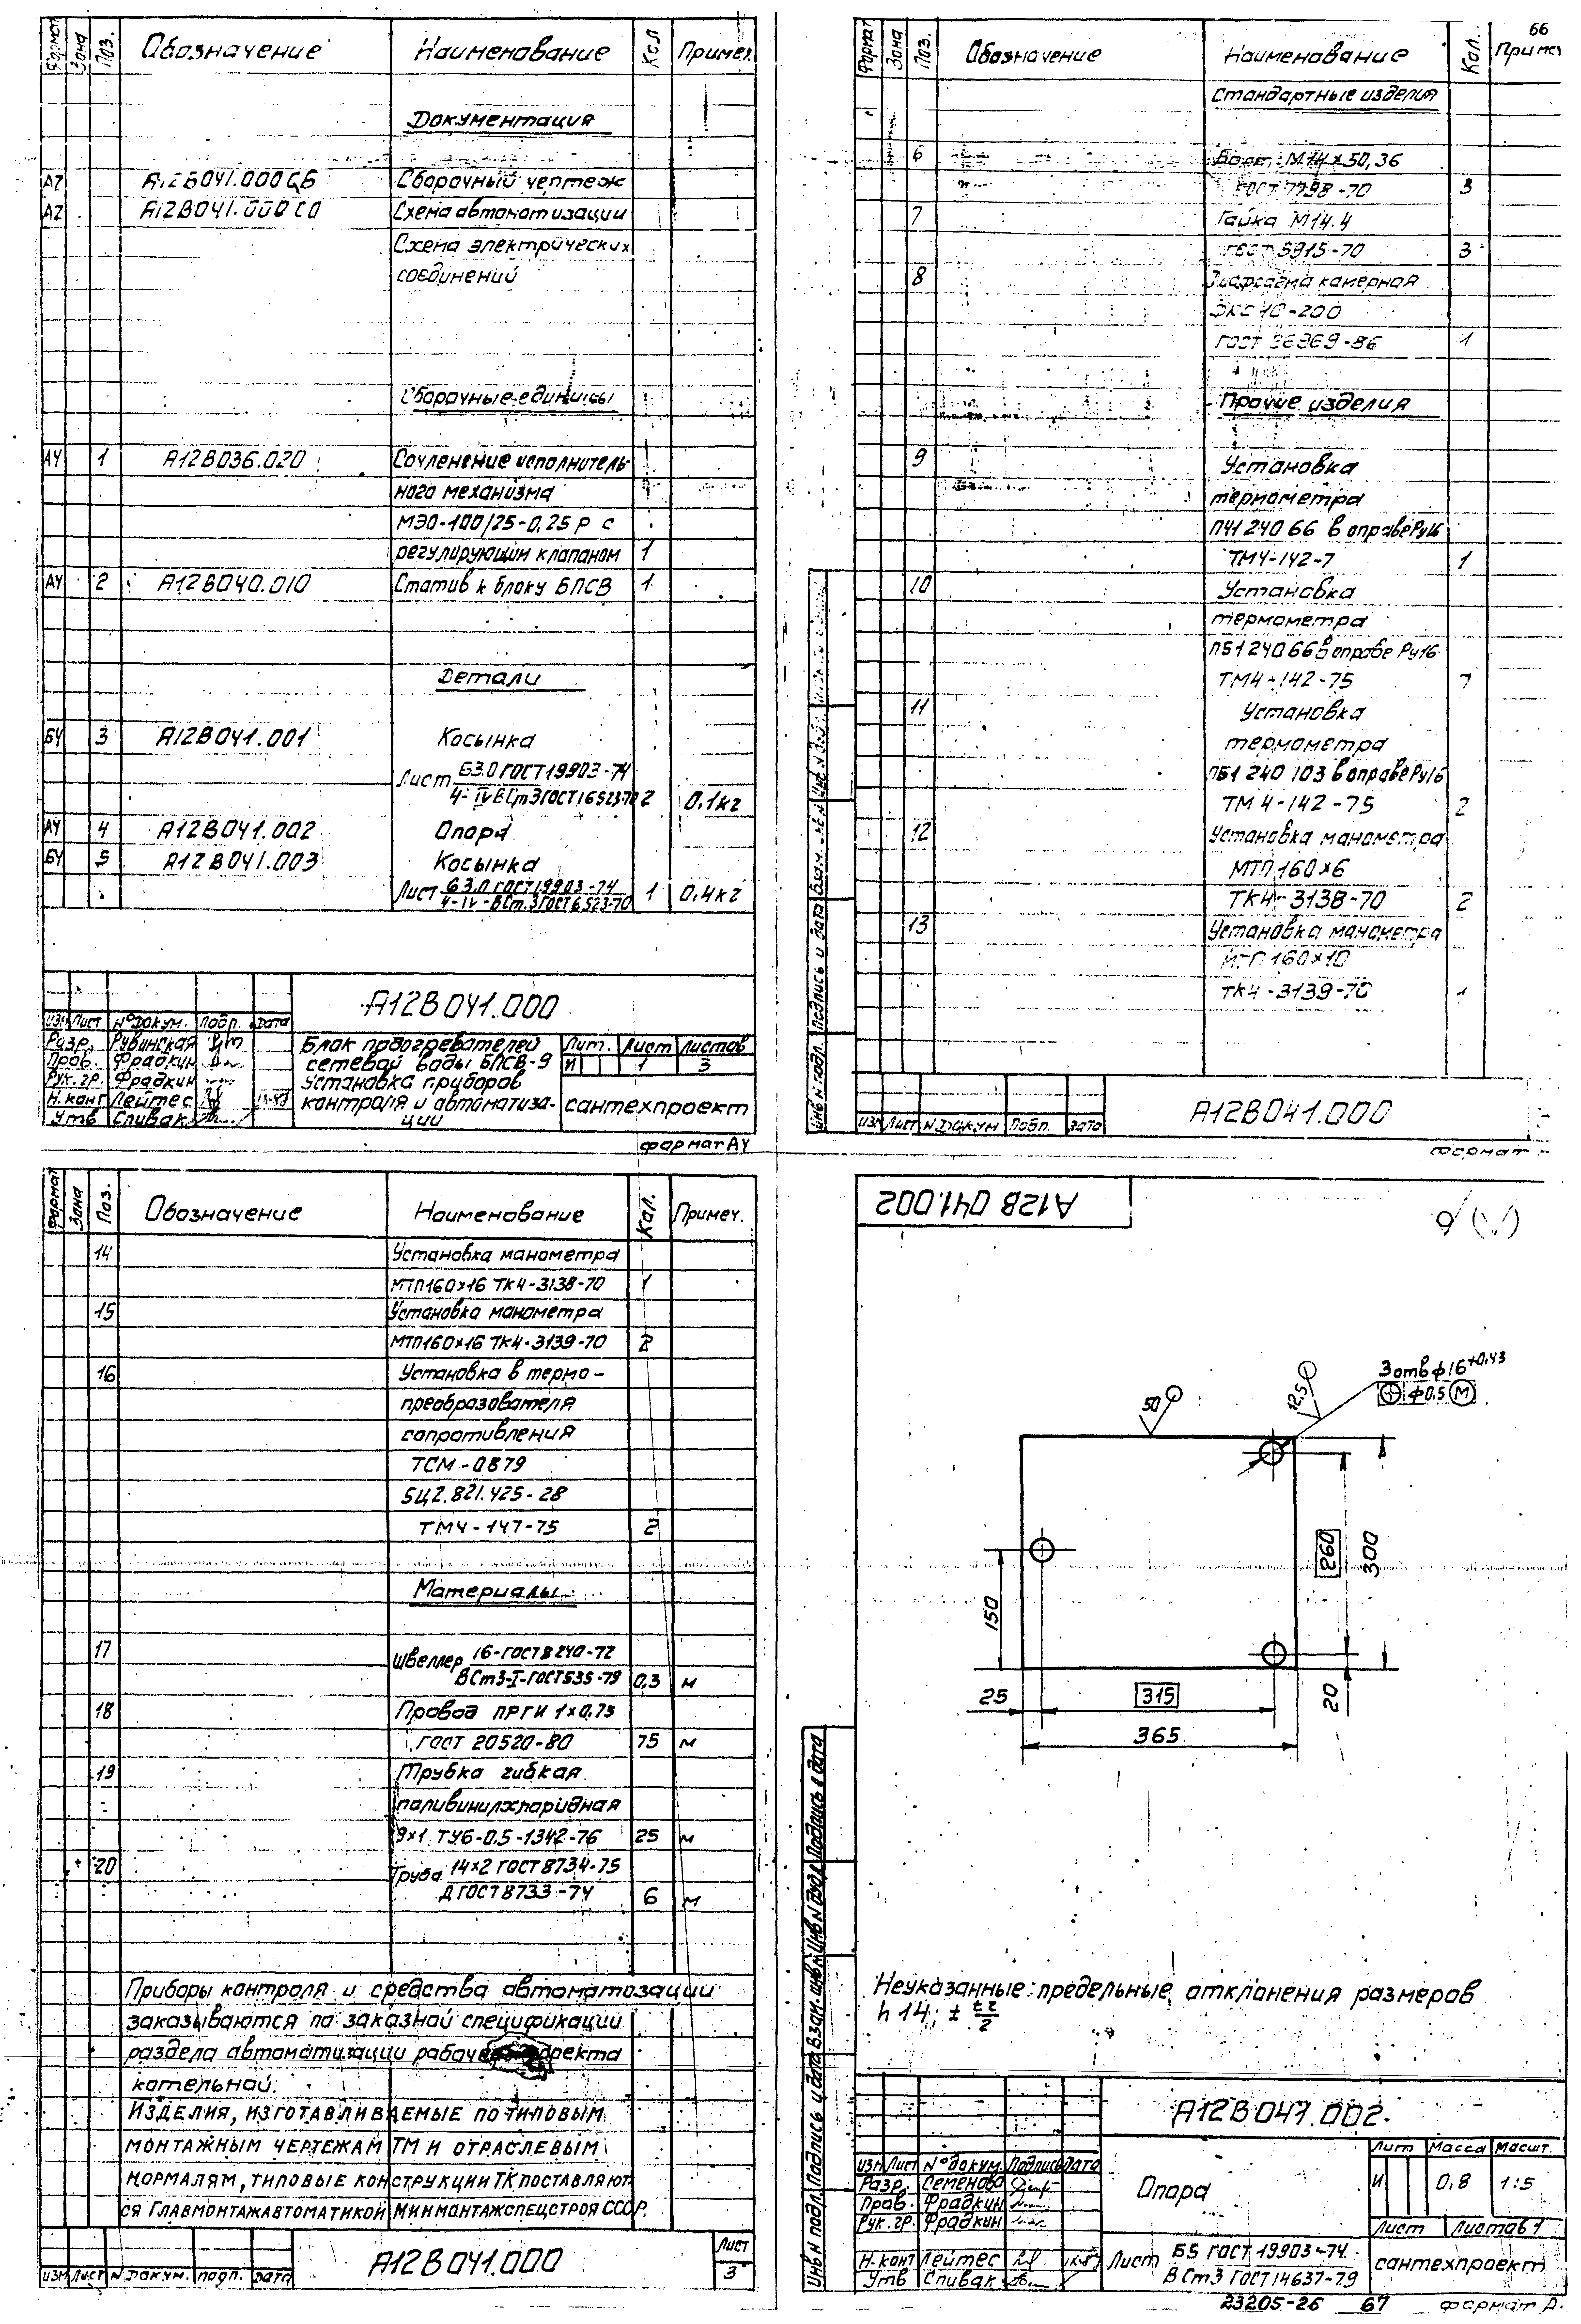 Формат Зона Поз. Обозначение Наименование Кол Примеч.
Документация
А2 А12В041.000СБ Сборочный чертеж
А2 А12В041.000СО Схема автоматизации
Схема электрических
соединений
Сборочные единицы
А4 1 А12В036.020 Сочленение исполнитель-
ного механизма
МЭО-100/25-0,25Р с
регулирующим клапаном 1
А4 2 А12В040.010 Статив к блоку БПСВ 1
Детали
БЧ 3 А12В041.001 Косынка
Лист Б3.0 ГОСТ19903-74
4-IVВСт3ГОСТ16523-70 2 0,1кг
А4 4 А12В041.002 Опора
БЧ 5 А12В041.003 Косынка
Лист Б3.0 ГОСТ19903-74
4-IV-ВСт.3ГОСТ16523-70 1 0,4кг
А12В041.000
Изм Лист №докум. Подп. Дата
Разр. Рувинская
Пров. Фрадкин
Рук.гр. Фрадкин
Н.конт Лейтес
Утв Спивак
Блок подогревателей
сетевой воды БПСВ-9
Установка приборов
контроля и автоматиза-
ции
Лит. Лист Листов
И 1 3
сантехпроект
формат А4
66
Формат Зона Поз. Обозначение Наименование Кол. Примеч
Стандартные изделия
6 Болт М14х50,36
ГОСТ 7798-70 3
7 Гайка М14.4
ГОСТ 5915-70 3
8 Диафрагма камерная
ДКС 10-200
ГОСТ 26969-86 1
Прочие изделия
9 Установка
термометра
П41 240 66 в оправе Ру16
ТМ4-142-7 1
10 Установка
термометра
П51 240 66 в оправе Ру16
ТМ4-142-75 7
11 Установка
термометра
П51 240 103 в оправе Ру16
ТМ 4-142-75 2
12 Установка манометра
МТП 160х6
ТК4-3138-70 2
13 Установка манометра
МТП 160х10
ТК4-3139-70 1
Инв N подл. Подпись и дата Взам. инв. N
Изм Лист N докум Подп. Дата
А12В041.000
Формат
Формат Зона Поз. Обозначение Наименование Кол. Примеч.
14 Установка манометра
МТП160х16 ТК4-3138-70 1
15 Установка манометра
МТП160х16 ТК4-3139-70 2
16 Установка в термо-
преобразователя
сопротивления
ТСМ-0879
5Ц2.821.425-28
ТМ4-147-75 2
Материалы
17 Швеллер 16-ГОСТ8240-72
ВСт3-I-ГОСТ535-79 0,3 м
18 Провод ПРГИ 1х0,75
ГОСТ 20520-80 75 м
19 Трубка гибкая
поливинилхлоридная
9х1 ТУ6-0.5-1342-76 25 м
20 Труба 14х2 ГОСТ 8734-75
Д ГОСТ 8733-74 6 м
Приборы контроля и средства автоматизации
заказываются по заказной спецификации
раздела автоматизации
котельной.
Изделия, изготавливаемые по типовым
монтажным чертежам ТМ и отраслевым
нормалям, типовые конструкции ТК поставляют-
ся Главмонтажавтоматикой Минмонтажспецстроя СССР.
Изм Лист N докум. Подп. Дата
А12В041.000
Лист
3
А12В 041.002
3 отв ф16⁺⁰·⁴³
ф0.5 М
50
12,5
260
300
150
25
315
365
20
Неуказанные предельные отклонения размеров
h 14; ± t2/2
Инв N подл. Подпись и дата Взам. инв N Инв N дубл. Подпись и дата
А12В041.002.
Изм Лист N°докум. Подпись Дата
Разр. Семенова
Пров. Фрадкин
Рук.гр. Фрадкин
Н.конт Лейтес
Утв Спивак
Опора
Лит Масса Масшт.
И 0,8 1:5
Лист Листов 1
Лист Б5 ГОСТ 19903-74
ВСт3 ГОСТ14637-79
сантехпроект
23205-26 67 формат А.